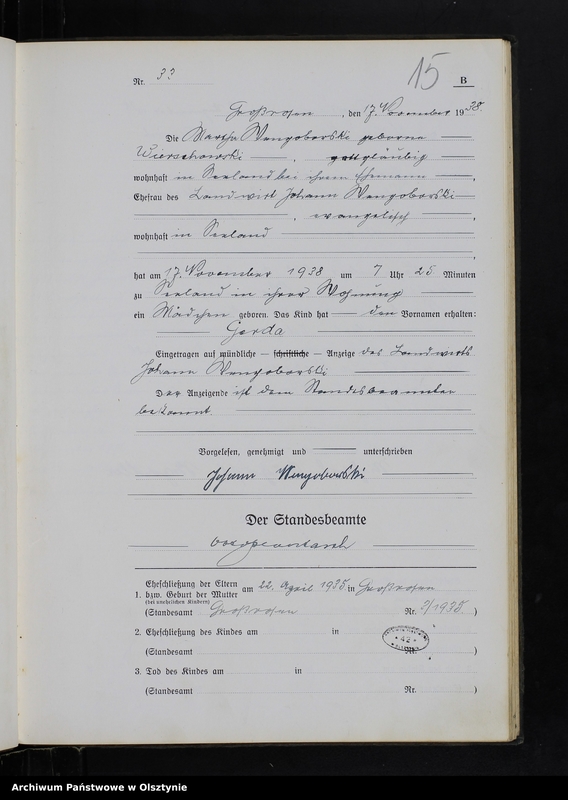 Nr. 33
15
B
Großrosen, den 17. November 1938.
Die Martha Wengoborski geborene
Wierschowski, gottgläubig
wohnhaft in Seeland bei ihrem Ehemann,
Ehefrau des Landwirt Johann Wengoborski
, evangelisch,
wohnhaft in Seeland
hat am 17. November 1938 um 7 Uhr 25 Minuten
zu Seeland in ihrer Wohnung
ein Mädchen geboren. Das Kind hat den Vornamen erhalten:
Gerda
Eingetragen auf mündliche – schriftliche – Anzeige des Landwirts
Johann Wengoborski
Der Anzeigende ist dem Standesbeamten
bekannt.
Vorgelesen, genehmigt und unterschrieben
Johann Wengoborski
Der Standesbeamte
Eheschließung der Eltern
1. bzw. Geburt der Mutter am 22. April 1935 in Großrosen
(bei unehelichen Kindern)
(Standesamt Großrosen Nr. /1935.)
2. Eheschließung des Kindes am in
(Standesamt Nr. )
42
3. Tod des Kindes am in
(Standesamt Nr. )
Archiwum Państwowe w Olsztynie